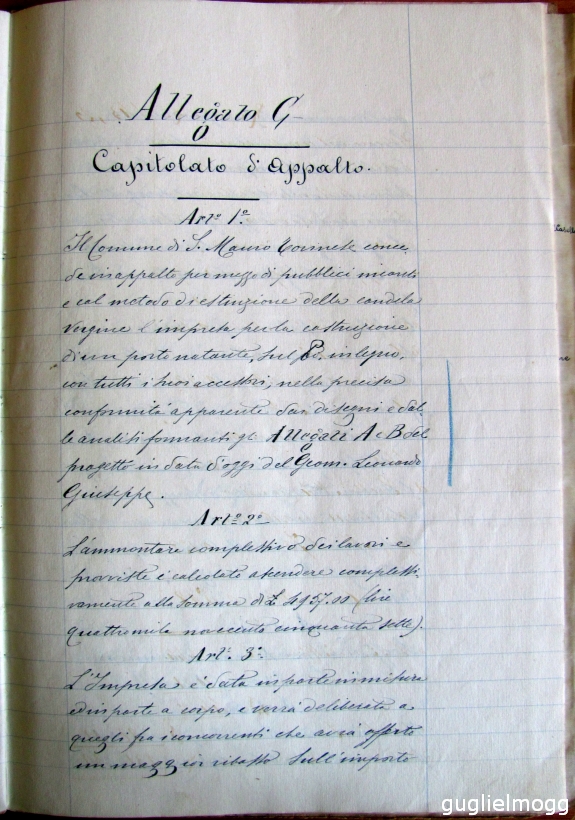 Allegato G
Capitolato d'Appalto.
Art.º 1.º
Il Comune di S. Mauro Torinese conce
de in appalto per mezzo di pubblici incanti
e col metodo di estinzione della candela
vergine l'impresa per la costruzione
di un porto natante, sul Po, in legno,
con tutti i suoi accessori, nella precisa
conformità apparente dai disegni e dal
le analisi formanti gli Allegati A e B del
progetto in data d'oggi del Geom. Leonardo
Giuseppe.
Art.º 2.º
L'ammontare complessivo dei lavori e
provviste è calcolato ascendere complessi
vamente alla somma di £ 4957.00 (lire
quattromila novecento cinquanta sette).
Art. 3.º
L'Impresa è data in parte in misura
ed in parte a corpo, e verrà deliberata a
quegli fra i concorrenti che avrà offerto
un maggior ribasso sull'importo
guglielmogg